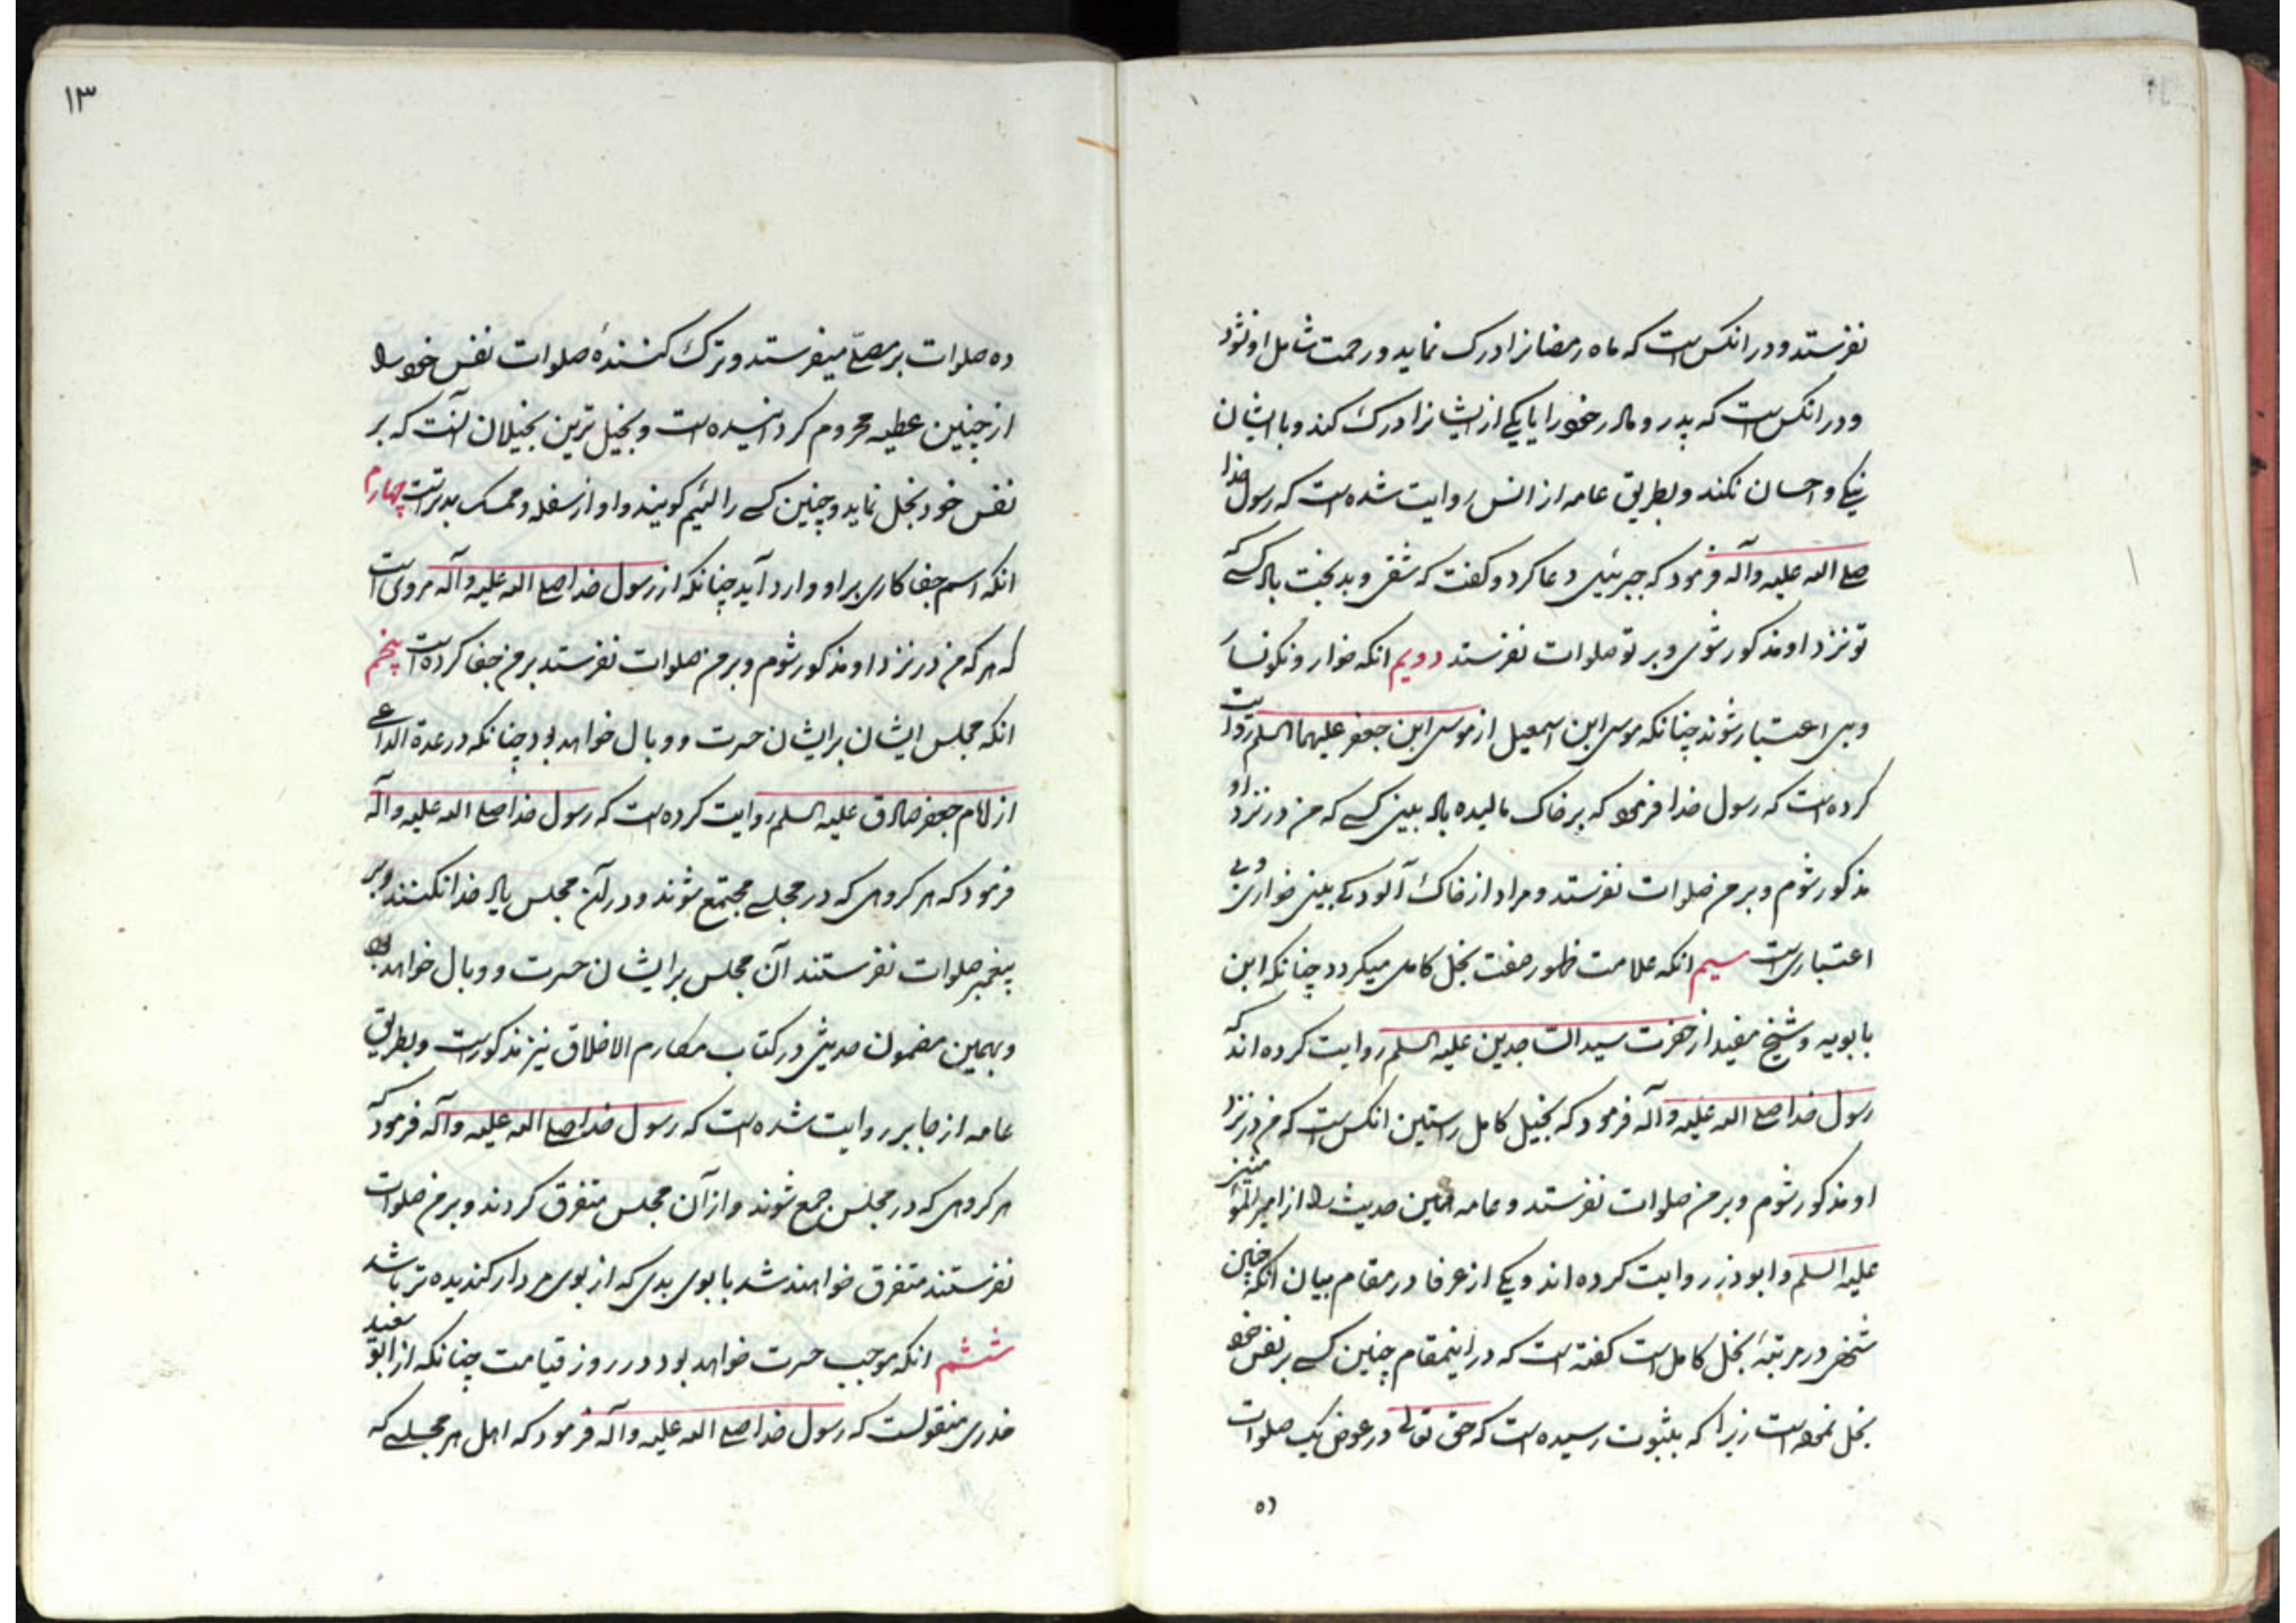 نفرستد و در انکس است که ماه رمضانرا درک نماید و رحمت شامل او نشود
و در انکس است که پدر و مادر خود را یا یکی از ایشانرا درک کند و با ایشان
نیکی و احسان نکند و بطریق عامه از انس روایت شده است که رسول خدا
صلی الله علیه و آله فرمود که جبرئیل دعا کرد و کفت که شقی و بدبخت باد کسی که
تو نزد او مذکور شوی و بر تو صلوات نفرستد دویم انکه خوار و نکونسار
و بی اعتبار شوند چنانکه موسی ابن اسمعیل از موسی ابن جعفر علیهما السلم روایت
کرده است که رسول خدا فرمود که بر خاک مالیده باد بینی کسی که من در نزد او
مذکور شوم و بر من صلوات نفرستد و مراد از خاک آلودکی بینی خواری و بی
اعتباری است سیم انکه علامت ظهور صفت بخل کامل میکردد چنانکه ابن
بابویه و شیخ مفید از حضرت سید الساجدین علیه السلم روایت کرده اند که
رسول خدا صلی الله علیه و آله فرمود که بخیل کامل راستین انکس است که من در نزد
او مذکور شوم و بر من صلوات نفرستد و عامه همین حدیث را از امیر المؤمنین
علیه السلم و ابوذر روایت کرده اند و یکی از عرفا در مقام بیان انکه چنین
شخص در مرتبۀ بخل کامل است کفته است که در اینمقام چنین کسی بر نفس خود
بخل نموده است زیرا که بثبوت رسیده است که حق تعالی در عوض یک صلوات
ده
۱۳
ده صلوات بر مصلّی میفرستد و ترک کنندۀ صلوات نفس خود را
از چنین عطیه محروم کردانیده است و بخیل ترین بخیلان آنست که بر
نفس خود بخل نماید و چنین کسی را لئیم کویند و او از سفله و ممسک بدتر است چهارم
انکه اسم جفا کاری بر او وارد آید چنانکه از رسول خدا صلی الله علیه و آله مروی است
که هر که من در نزد او مذکور شوم و بر من صلوات نفرستد بر من جفا کرده است پنجم
انکه مجلس ایشان بر ایشان حسرت و وبال خواهد بود چنانکه در عدة الداعی
از امام جعفر صادق علیه السلم روایت کرده است که رسول خدا صلی الله علیه و آله
فرمود که هر کروهی که در مجلسی مجتمع شوند و در آن مجلس یاد خدا نکنند و بر
پیغمبر صلوات نفرستند آن مجلس بر ایشان حسرت و وبال خواهد بود
و بهمین مضمون حدیثی در کتاب مکارم الاخلاق نیز مذکور است و بطریق
عامه از جابر روایت شده است که رسول خدا صلی الله علیه و آله فرمود که
هر کروهی که در مجلس جمع شوند و از آن مجلس متفرق کردند و بر من صلوات
نفرستند متفرق خواهند شد با بوی بدی که از بوی مردار کندیده تر باشد
ششم انکه موجب حسرت خواهد بود در روز قیامت چنانکه از ابو سعید
خدری منقولست که رسول خدا صلی الله علیه و آله فرمود که اهل هر مجلسی که